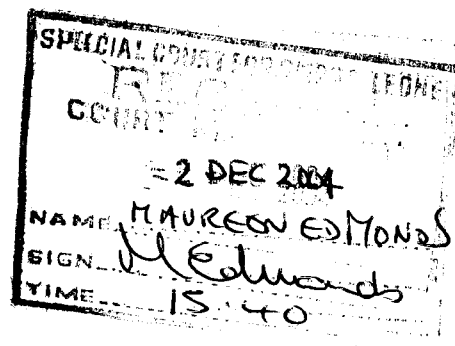 SPECIAL COURT FOR SIERRA LEONE
COURT
- 2 DEC 2004
NAME MAUREEN EDMONDS
SIGN M Edmonds
TIME 15.40